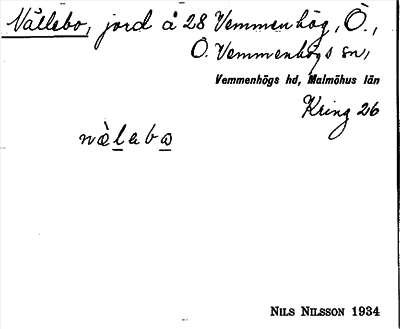 Nållebo, jord å 28 Vemmenhög, Ö.,
Ö. Vemmenhögs sn,
Vemmenhögs hd, Malmöhus län
Kring 26
NILS NILSSON 1934